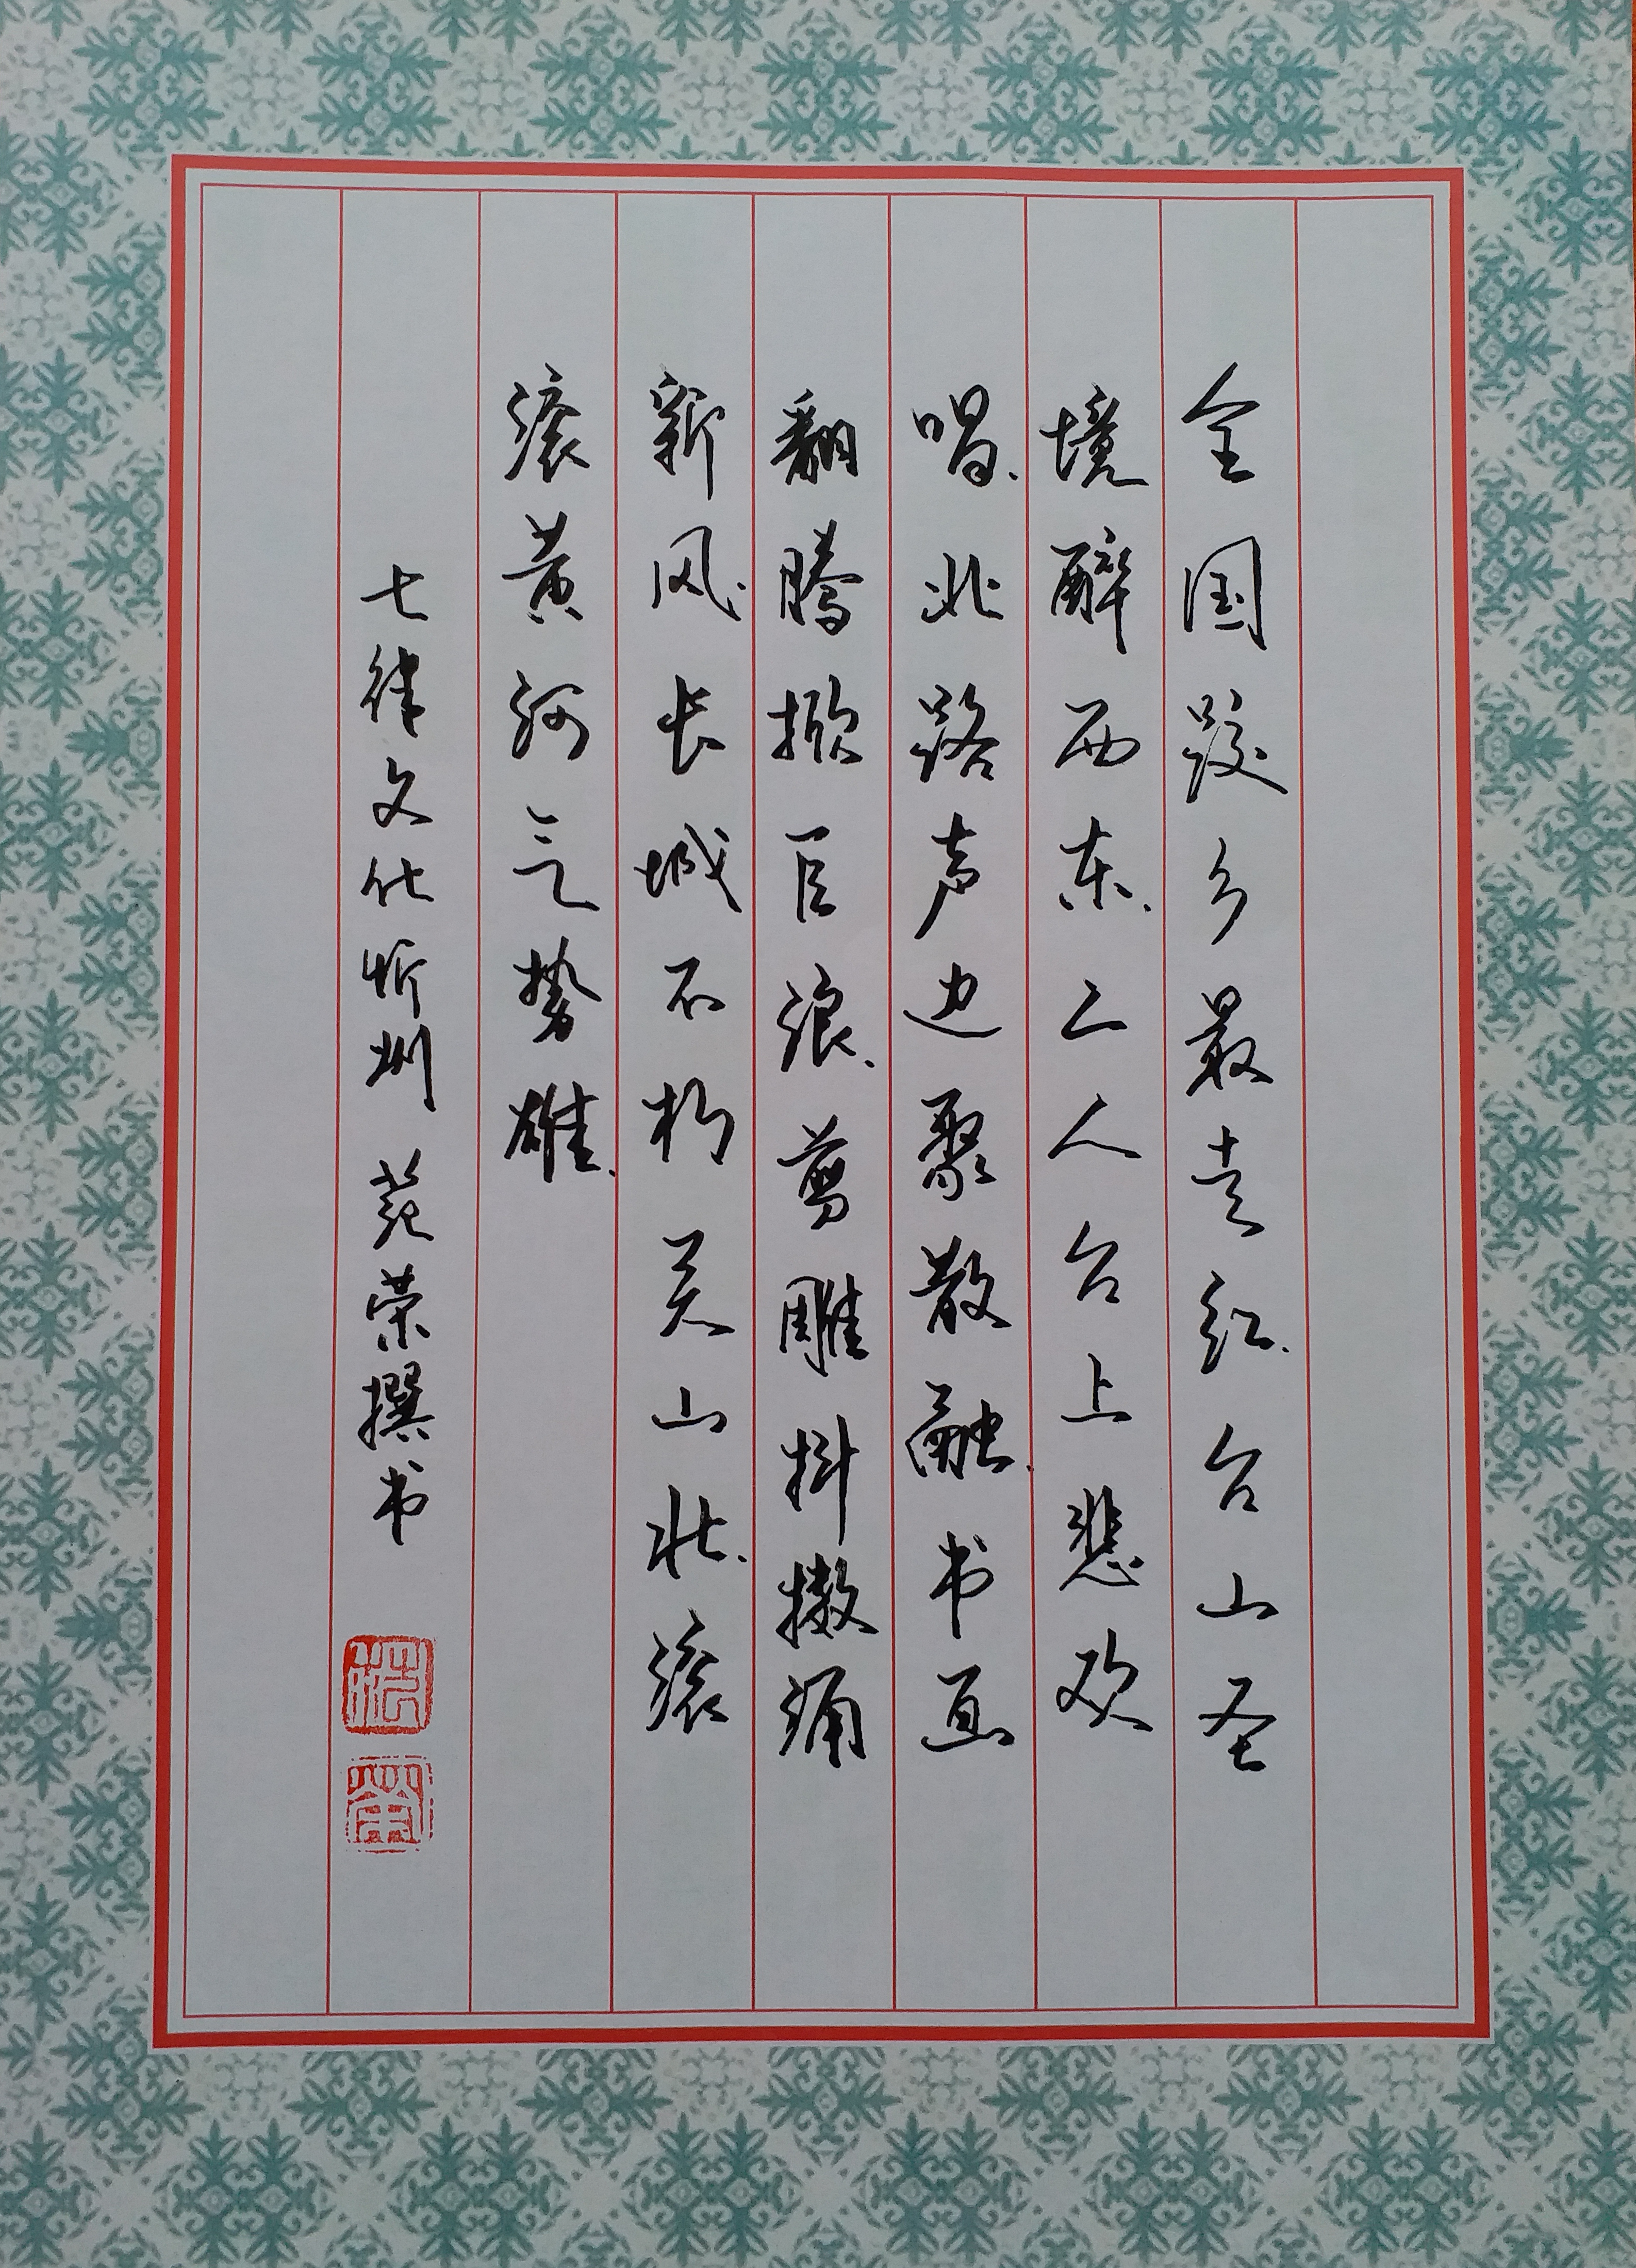 全国跤乡最走红.台山圣
境醉西东.二人台上悲欢
唱.北路声边聚散融.书画
翻腾掀巨浪.剪雕抖擞涌
新风.长城不朽关山壮.滚
滚黄河气势雄.
七律文化忻州 范荣撰书